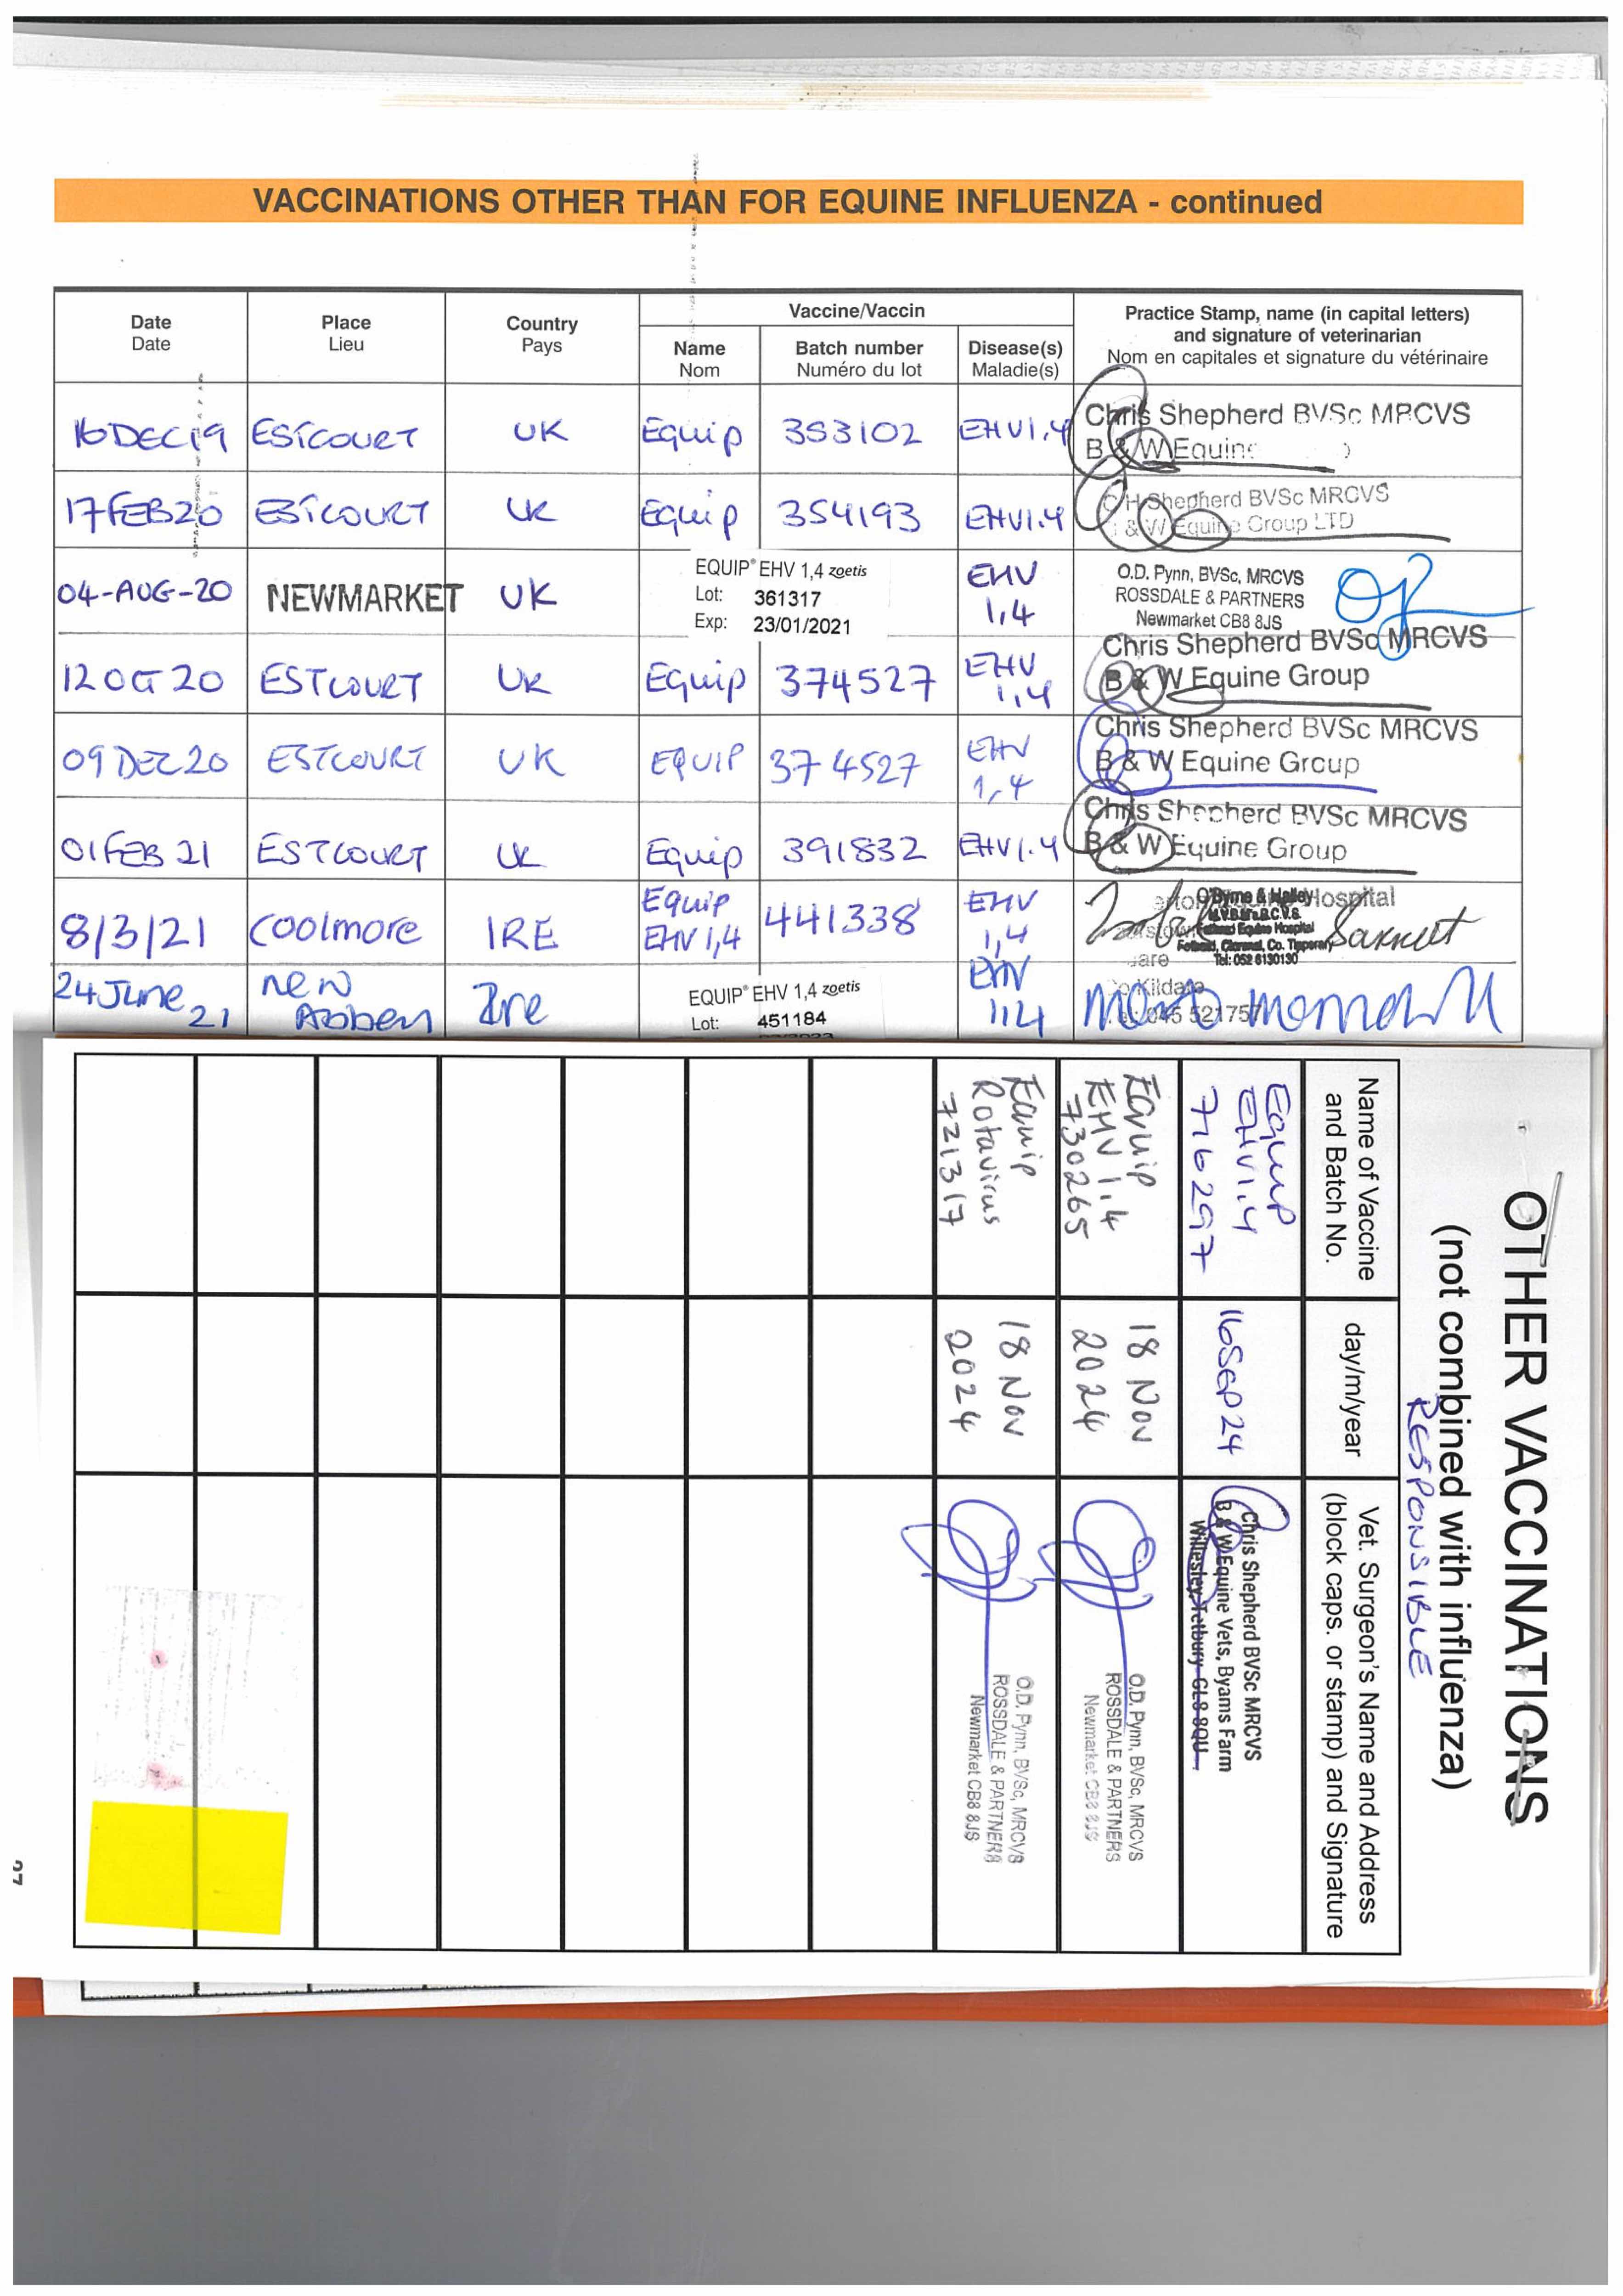 VACCINATIONS OTHER THAN FOR EQUINE INFLUENZA - continued
Date
Date
Place
Lieu
Country
Pays
Vaccine/Vaccin
Name
Nom
Batch number
Numéro du lot
Disease(s)
Maladie(s)
Practice Stamp, name (in capital letters)
and signature of veterinarian
Nom en capitales et signature du vétérinaire
16 DEC 19 ESTCOURT UK Equip 353102 EHV1.4 Chris Shepherd BVSc MRCVS
B & W Equine
17 FEB 20 ESTCOURT UK Equip 354193 EHV1.4 C H Shepherd BVSc MRCVS
& W Equine Group LTD
04-AUG-20 NEWMARKET UK
EQUIP® EHV 1,4 zoetis
Lot: 361317
Exp: 23/01/2021
EHV
1,4
O.D. Pynn, BVSc, MRCVS
ROSSDALE & PARTNERS
Newmarket CB8 8JS
12 OCT 20 ESTCOURT UK Equip 374527 EHV
1,4
Chris Shepherd BVSc MRCVS
B & W Equine Group
09 DEC 20 ESTCOURT UK EQUIP 374527 EHV
1,4
Chris Shepherd BVSc MRCVS
B & W Equine Group
01 FEB 21 ESTCOURT UK Equip 391832 EHV1.4 Chris Shepherd BVSc MRCVS
B & W Equine Group
8/3/21 Coolmore IRE Equip
EHV 1,4
441338 EHV
1,4
O'Byrne & Halley Hospital
M.V.B. M.R.C.V.S.
Fethard Equine Hospital
Fethard, Clonmel, Co. Tipperary
Tel: 052 6130130
24 June
21
New
Abbey
Ire
EQUIP® EHV 1,4 zoetis
Lot: 451184
EHV
1,4
Kildare
045 521757
OTHER VACCINATIONS
(not combined with influenza)
RESPONSIBLE
Name of Vaccine
and Batch No.
day/m/year
Vet. Surgeon's Name and Address
(block caps. or stamp) and Signature
Equip
EHV1.4
716297
16 Sep 24
Chris Shepherd BVSc MRCVS
B & W Equine Vets, Byams Farm
Willesley, Tetbury GL8 8QU
Equip
EHV 1.4
730265
18 Nov
2024
O.D. Pynn, BVSc, MRCVS
ROSSDALE & PARTNERS
Newmarket CB8 8JS
Equip
Rotavirus
721317
18 Nov
2024
O.D. Pynn, BVSc, MRCVS
ROSSDALE & PARTNERS
Newmarket CB8 8JS